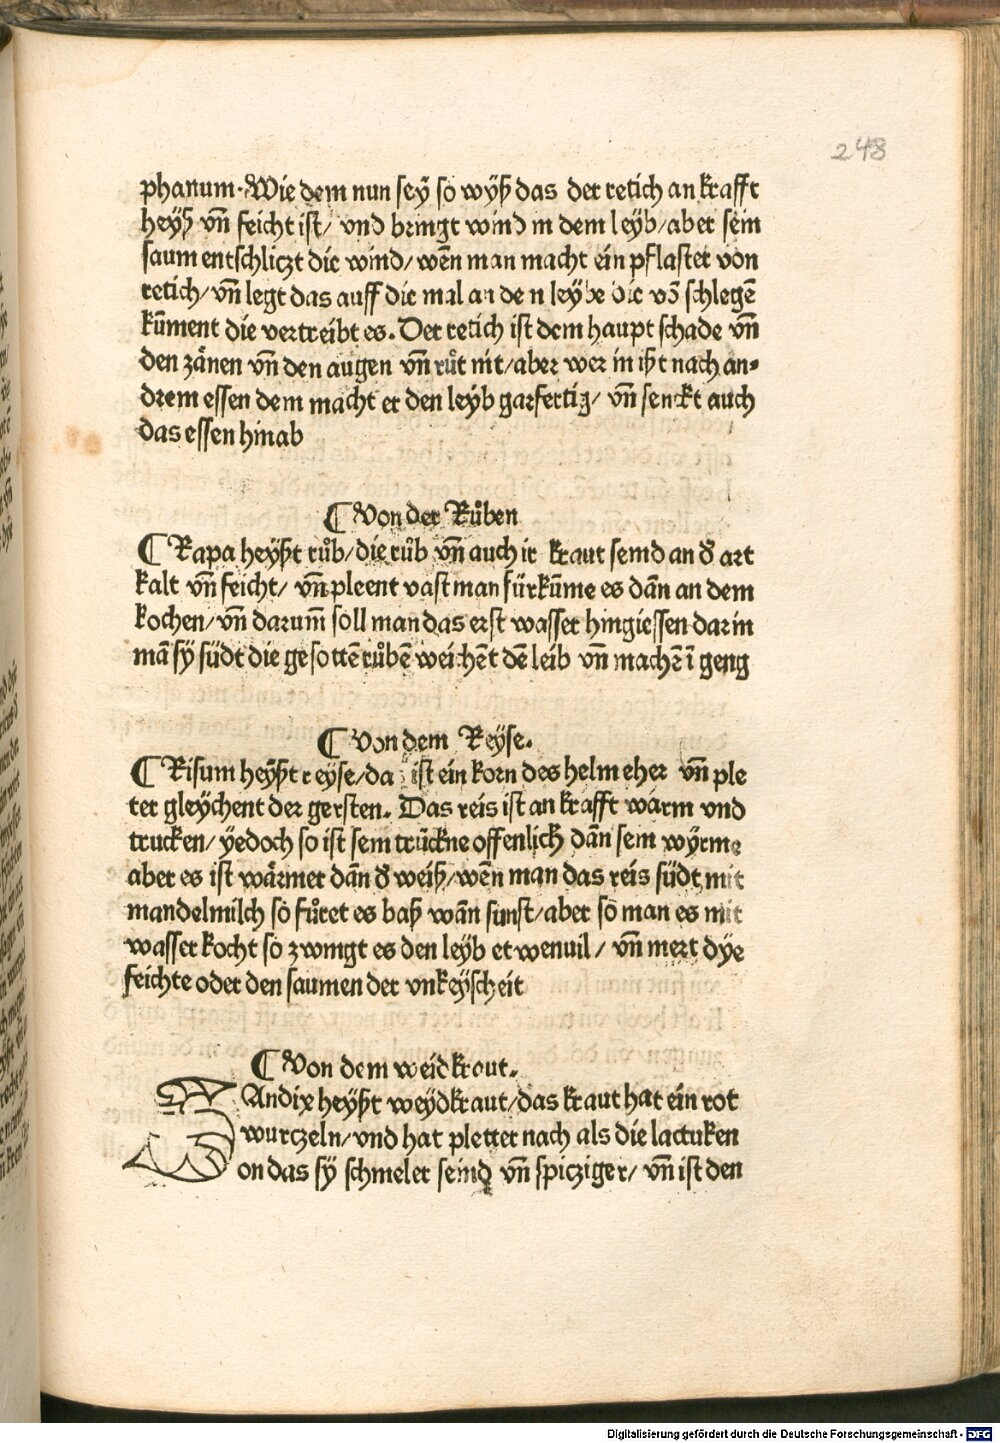 248
phanum·Wie dem nun seÿ so wÿß das der retich an krafft
heÿß vn̄ feicht ist/ vnd bringt wind in dem leÿb/aber sein
saum entschliczt die wind/wēn man macht ein pflaster von
retich/vn̄ legt das auff die mal an den leÿbe die vō schlegē
kūment die vertreibt es. Der retich ist dem haupt schade vn̄
den zänen vn̄ den augen vn̄ růt nit/aber wer in ißt nach an⸗
drem essen dem macht er den leÿb garfertig/ vn̄ senckt auch
das essen hinab
¶ Von der Růben
¶ Rapa heÿßt růb/die růb vn̄ auch ir kraut seind an d̕ art
kalt vn̄ feicht/ vn̄ pleent vast man fürkūme es dān an dem
kochen/vn̄ darum̄ soll man das erst wasser hingiessen darin
mā sÿ südt die gesottē růbē weichēt dē leib vn̄ machē ī geng
¶ Von dem Reÿse.
¶ Risum heÿßt reÿse/da ist ein korn des helm eher vn̄ ple
ter gleÿchent der gersten. Das reis ist an krafft warm vnd
trucken/ ÿedoch so ist sein trückne offenlich dān sein wÿrme
aber es ist wärmer dān d̕ weiß/wēn man das reis südt mit
mandelmilch so fůret es baß wān sunst/aber so man es mit
wasser kocht so zwingt es den leÿb etwenuil/ vn̄ mert dÿe
feichte oder den saumen der vnkeÿscheit
¶ Von dem weidkrout.
WAndix heÿßt weÿdkraut/das kraut hat ein rot
wurczeln/vnd hat pletter nach als die lactuken
on das sÿ schmeler seind vn̄ spicziger/ vn̄ ist den
Digitalisierung gefördert durch die Deutsche Forschungsgemeinschaft - DFG